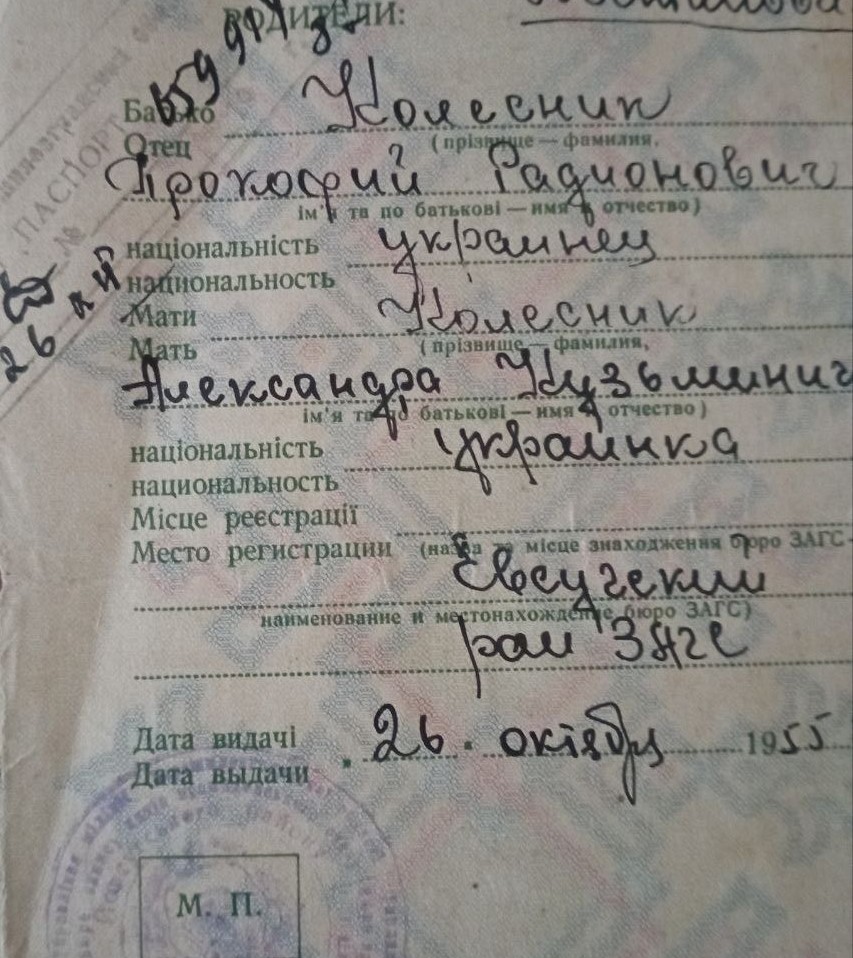 РОДИТЕЛИ:
Батько Колесник
Отец (прізвище — фамилия,
Прокофий Радионович
ім'я та по батькові — имя и отчество)
національність украинец
национальность
Мати Колесник
Мать (прізвище — фамилия,
Александра Кузьминич
ім'я та по батькові — имя и отчество)
національність украинка
национальность
Місце реєстрації
Место регистрации (назва та місце знаходження бюро ЗАГС-
наименование и местонахождение бюро ЗАГС)
рай ЗАГС
Дата видачі 26. октября 1955
Дата выдачи
М. П.
ПАСПОРТ
№